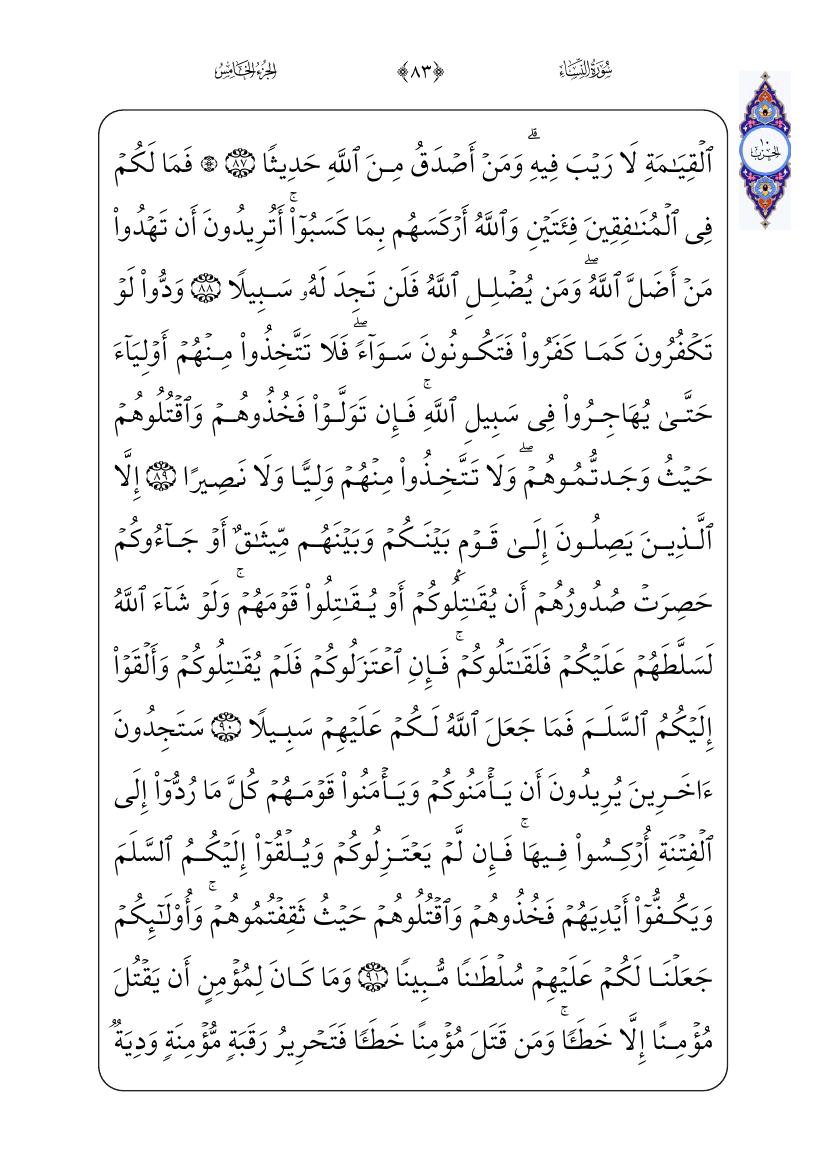 سُورَةُ النِّسَاءِ ﴿٨٣﴾ الجُزْءُ الخَامِسُ
١٠ الحِزْب
ٱلۡقِيَٰمَةِ لَا رَيۡبَ فِيهِۗ وَمَنۡ أَصۡدَقُ مِنَ ٱللَّهِ حَدِيثٗا ٨٧ ۞ فَمَا لَكُمۡ
فِي ٱلۡمُنَٰفِقِينَ فِئَتَيۡنِ وَٱللَّهُ أَرۡكَسَهُم بِمَا كَسَبُوٓاْۚ أَتُرِيدُونَ أَن تَهۡدُواْ
مَنۡ أَضَلَّ ٱللَّهُۖ وَمَن يُضۡلِلِ ٱللَّهُ فَلَن تَجِدَ لَهُۥ سَبِيلٗا ٨٨ وَدُّواْ لَوۡ
تَكۡفُرُونَ كَمَا كَفَرُواْ فَتَكُونُونَ سَوَآءٗۖ فَلَا تَتَّخِذُواْ مِنۡهُمۡ أَوۡلِيَآءَ
حَتَّىٰ يُهَاجِرُواْ فِي سَبِيلِ ٱللَّهِۚ فَإِن تَوَلَّوۡاْ فَخُذُوهُمۡ وَٱقۡتُلُوهُمۡ
حَيۡثُ وَجَدتُّمُوهُمۡۖ وَلَا تَتَّخِذُواْ مِنۡهُمۡ وَلِيّٗا وَلَا نَصِيرًا ٨٩ إِلَّا
ٱلَّذِينَ يَصِلُونَ إِلَىٰ قَوۡمِۭ بَيۡنَكُمۡ وَبَيۡنَهُم مِّيثَٰقٌ أَوۡ جَآءُوكُمۡ
حَصِرَتۡ صُدُورُهُمۡ أَن يُقَٰتِلُوكُمۡ أَوۡ يُقَٰتِلُواْ قَوۡمَهُمۡۚ وَلَوۡ شَآءَ ٱللَّهُ
لَسَلَّطَهُمۡ عَلَيۡكُمۡ فَلَقَٰتَلُوكُمۡۚ فَإِنِ ٱعۡتَزَلُوكُمۡ فَلَمۡ يُقَٰتِلُوكُمۡ وَأَلۡقَوۡاْ
إِلَيۡكُمُ ٱلسَّلَمَ فَمَا جَعَلَ ٱللَّهُ لَكُمۡ عَلَيۡهِمۡ سَبِيلٗا ٩٠ سَتَجِدُونَ
ءَاخَرِينَ يُرِيدُونَ أَن يَأۡمَنُوكُمۡ وَيَأۡمَنُواْ قَوۡمَهُمۡ كُلَّ مَا رُدُّوٓاْ إِلَى
ٱلۡفِتۡنَةِ أُرۡكِسُواْ فِيهَاۚ فَإِن لَّمۡ يَعۡتَزِلُوكُمۡ وَيُلۡقُوٓاْ إِلَيۡكُمُ ٱلسَّلَمَ
وَيَكُفُّوٓاْ أَيۡدِيَهُمۡ فَخُذُوهُمۡ وَٱقۡتُلُوهُمۡ حَيۡثُ ثَقِفۡتُمُوهُمۡۚ وَأُوْلَٰٓئِكُمۡ
جَعَلۡنَا لَكُمۡ عَلَيۡهِمۡ سُلۡطَٰنٗا مُّبِينٗا ٩١ وَمَا كَانَ لِمُؤۡمِنٍ أَن يَقۡتُلَ
مُؤۡمِنًا إِلَّا خَطَـٔٗاۚ وَمَن قَتَلَ مُؤۡمِنًا خَطَـٔٗا فَتَحۡرِيرُ رَقَبَةٖ مُّؤۡمِنَةٖ وَدِيَةٞ